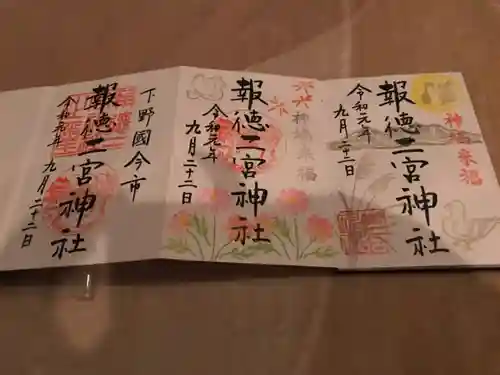 神福来福
報徳二宮神社
令和元年
九月二十二日
神福来福
報徳二宮神社
令和元年
九月二十二日
下野國今市
報徳二宮神社
令和元年
九月二十二日